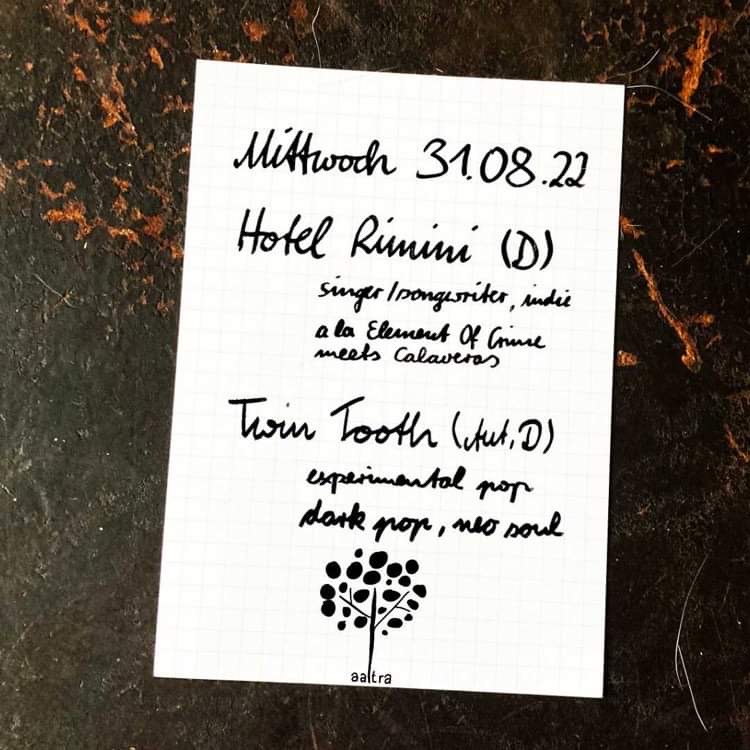 Mittwoch 31.08.22
Hotel Rimini (D)
singer/songwriter, indie
a la Element Of Crime
meets Calaveras
Twin Tooth (Aut, D)
experimental pop
dark pop, neo soul
aaltra